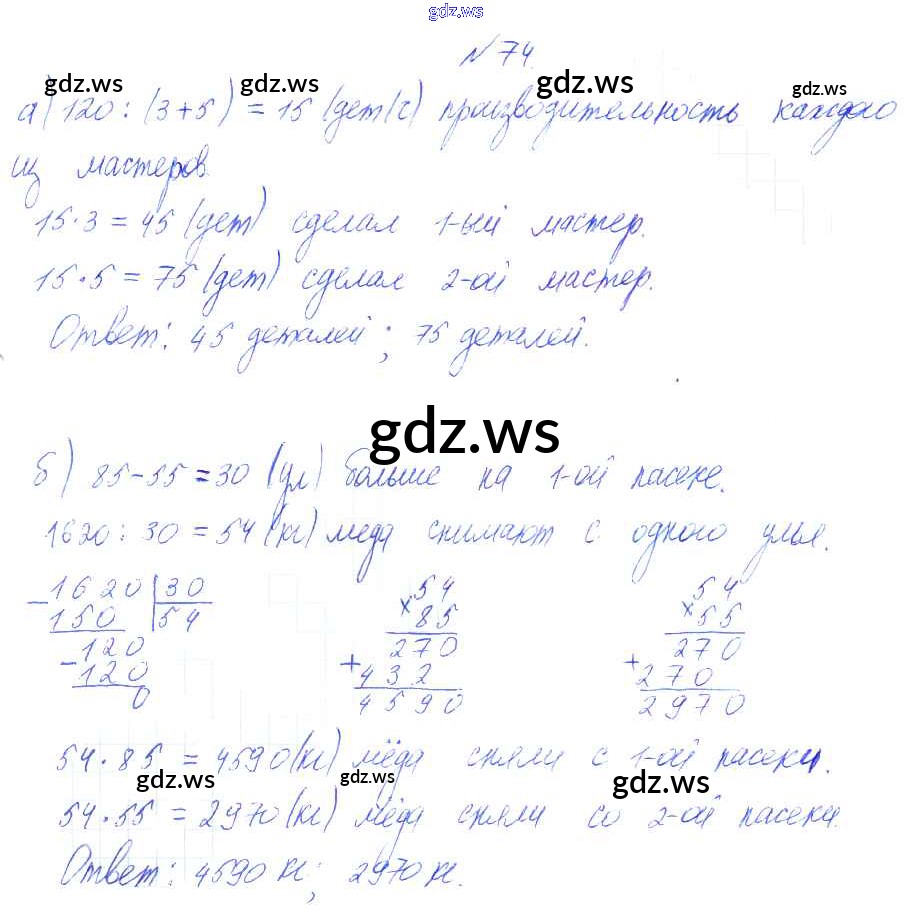 gdz.ws
№ 74.
gdz.ws gdz.ws gdz.ws
а) 120 : (3+5) = 15 (дет/г) производительность каждого
из мастеров.
15·3 = 45 (дет) сделал 1-ый мастер.
15·5 = 75 (дет) сделал 2-ой мастер.
Ответ: 45 деталей; 75 деталей.
gdz.ws
б) 85-55 = 30 (ул) больше на 1-ой пасеке.
1620 : 30 = 54 (кг) меда снимают с одного улья.
1620 | 30 54 54
- 150 | 54 × 85 × 55
120 270 270
- 120 + 432 + 270
0 4590 2970
54·85 = 4590 (кг) мёда сняли с 1-ой пасеки.
gdz.ws gdz.ws gdz.ws
54·55 = 2970 (кг) мёда сняли со 2-ой пасеки.
Ответ: 4590 кг; 2970 кг.